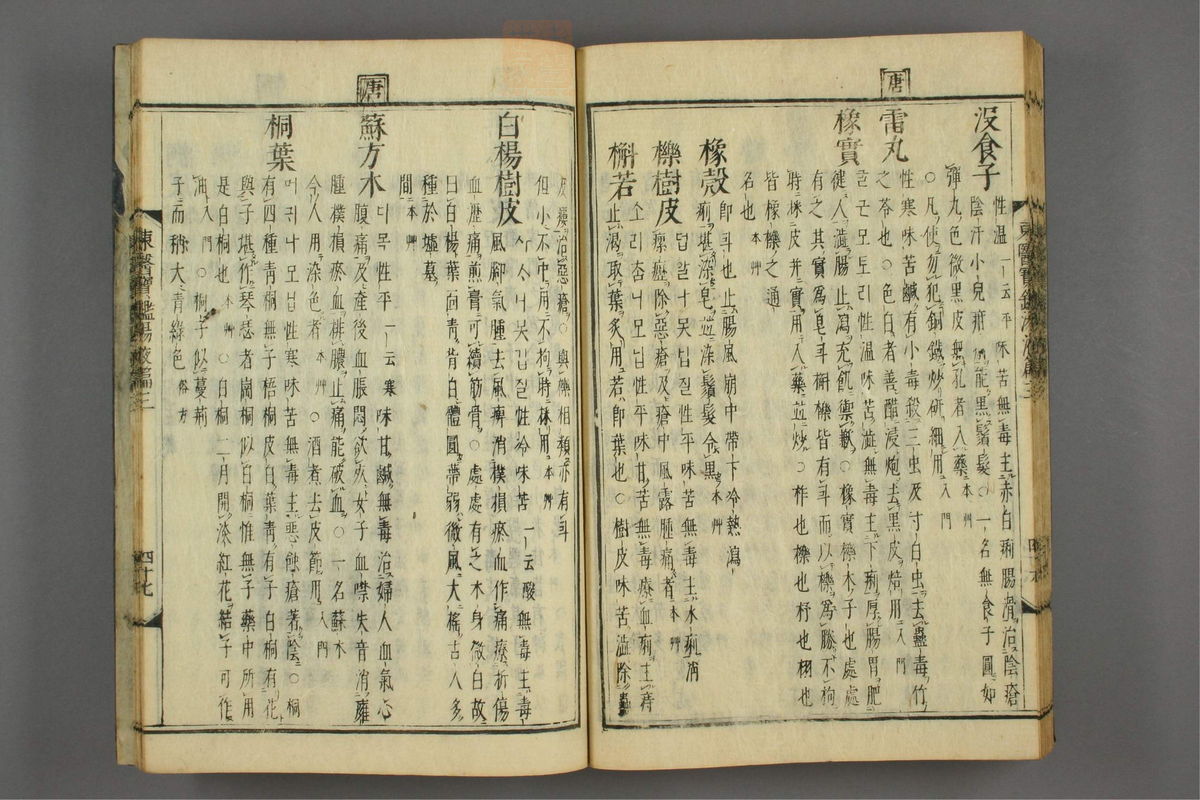 唐
沒食子
性溫一云平味苦無毒主赤白痢腸滑治陰瘡
陰汗小兒疳䘌能黑鬚髮○一名無食子圓如
彈丸色微黑皮無孔者入藥本艸
○凡使勿犯銅鐵炒硏細用入門
雷丸
性寒味苦鹹有小毒殺三虫及寸白虫去蠱毒竹
之苓也○色白者善醋浸炮去黑皮焙用入門
橡實
굴근도토리性溫味苦澁無毒主下痢厚腸胃肥
健人澁腸止瀉充飢禦歉○橡實櫟木子也處處
有之其實爲皂斗槲櫟皆有斗而以櫟爲勝不拘
時採皮幷實用入藥並炒○柞也櫟也杼也栩也
皆橡櫟之通
名也本艸
橡殼
卽斗也止腸風崩中帶下冷熱瀉
痢堪染皂並染鬚髮令黑本艸
櫟樹皮
덥갈나못겁질性平味苦無毒主水痢消
瘰癧除惡瘡及瘡中風露腫痛者本艸
槲若
소리춤나모닙性平味甘苦無毒療血痢主痔
止渴取葉炙用若卽葉也○樹皮味苦澁除蠱
及瘻治惡瘡○與櫟相類亦有斗
但小不中用不拘時採用本艸
白楊樹皮
사스나못겁질性冷味苦一云酸無毒主毒
風脚氣腫去風痺消撲損瘀血作痛療折傷
血瀝痛煎膏可續筋骨○處處有之木身微白故
曰白楊葉面靑背白體圓蔕弱微風大搖古人多
種於墟墓
間本艸
唐
蘇方木
다목性平一云寒味甘鹹無毒治婦人血氣心
腹痛及產後血脹悶欲死女子血噤失音消癰
腫撲損瘀血排膿止痛能破血○一名蘇木
今人用染色者本艸○酒煮去皮節用入門
桐葉
머귀나모닙性寒味苦無毒主惡蝕瘡著陰○桐
有四種靑桐無子梧桐皮白葉靑有子白桐有花
與子堪作琴瑟者崗桐似白桐惟無子藥中所用
是白桐也本艸○白桐二月開淡紅花結子可作
油入門○桐子似蔓荊
子而稍大靑綠色俗方
東醫寶鑑湯液篇三
四十七